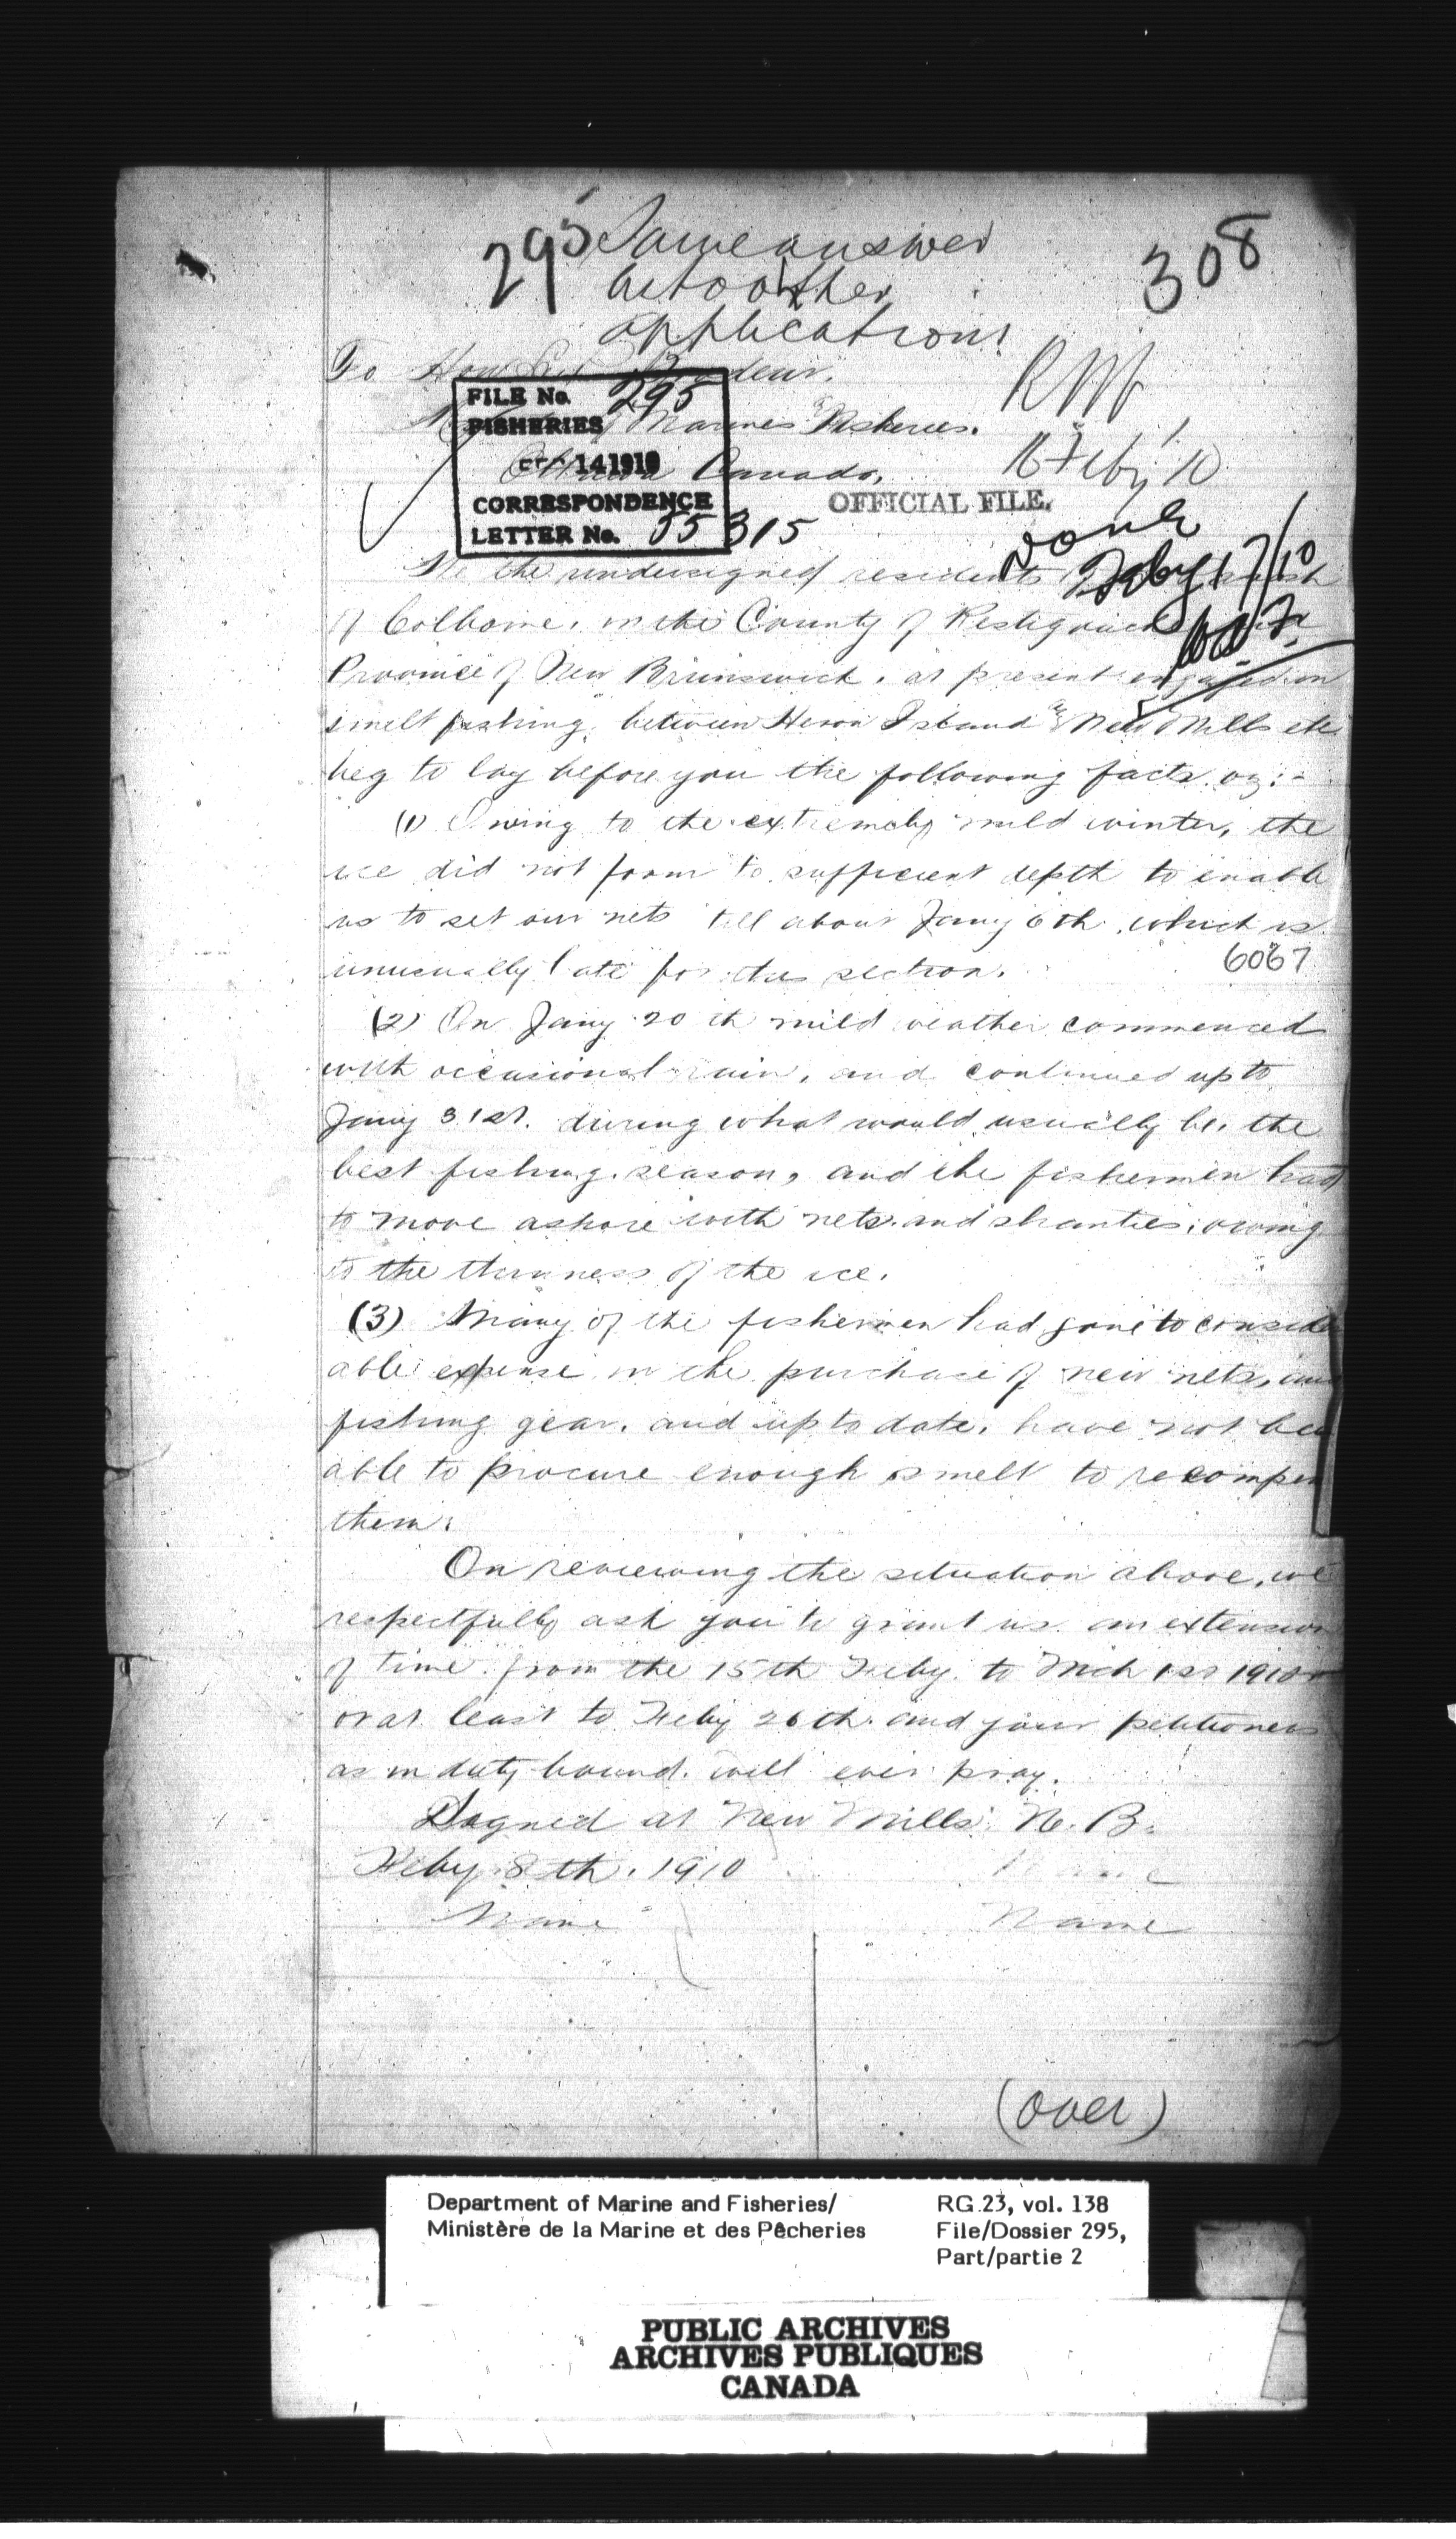 295 Same answer
as to other
applications
308
To Hon L. P. Brodeur.
RNV
Marine & Fisheries.
Ottawa Canada,
16 Feby '10
FILE No. 295
FISHERIES
FEB 14 1910
CORRESPONDENCE
LETTER No. 55315
OFFICIAL FILE.
Done
Feby 17/10
We the undersigned residents
of Colborne, in the County of Restigouche
Province of New Brunswick, at present engaged in
smelt fishing, between Heron Island & New Mills etc
beg to lay before you the following facts. viz:-
(1) Owing to the extremely mild winter, the
ice did not form to sufficient depth to enable
us to set our nets till about Jany 6th, which is
unusually late for this section.
6067
(2) On Jany 20th mild weather commenced
with occasional rain, and continued up to
Jany 31st. during what would usually be, the
best fishing season, and the fishermen had
to move ashore with nets and shanties, owing
to the thinness of the ice.
(3) Many of the fishermen had gone to consider
able expense in the purchase of new nets, and
fishing gear, and up to date, have not been
able to procure enough smelt to recompen
them.
On reviewing the situation above, we
respectfully ask you to grant us an extension
of time from the 15th Feby. to Mch 1st 1910
or at least to Feby 26th. and your petitioners
as in duty bound. will ever pray.
Signed at New Mills. N. B.
Feby 8th. 1910
Name Name
(over)
Department of Marine and Fisheries/
Ministère de la Marine et des Pêcheries
RG 23, vol. 138
File/Dossier 295,
Part/partie 2
PUBLIC ARCHIVES
ARCHIVES PUBLIQUES
CANADA